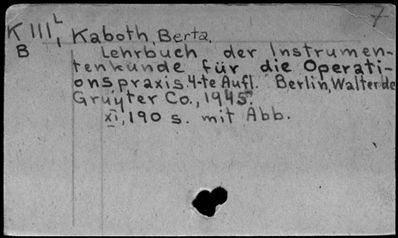 7
K III L/1 Kaboth, Berta.
B Lehrbuch der Instrumen-
tenkunde für die Operati-
onspraxis. 4-te Aufl. Berlin, Walter de
Gruyter Co., 1945.
XI, 190 s. mit Abb.